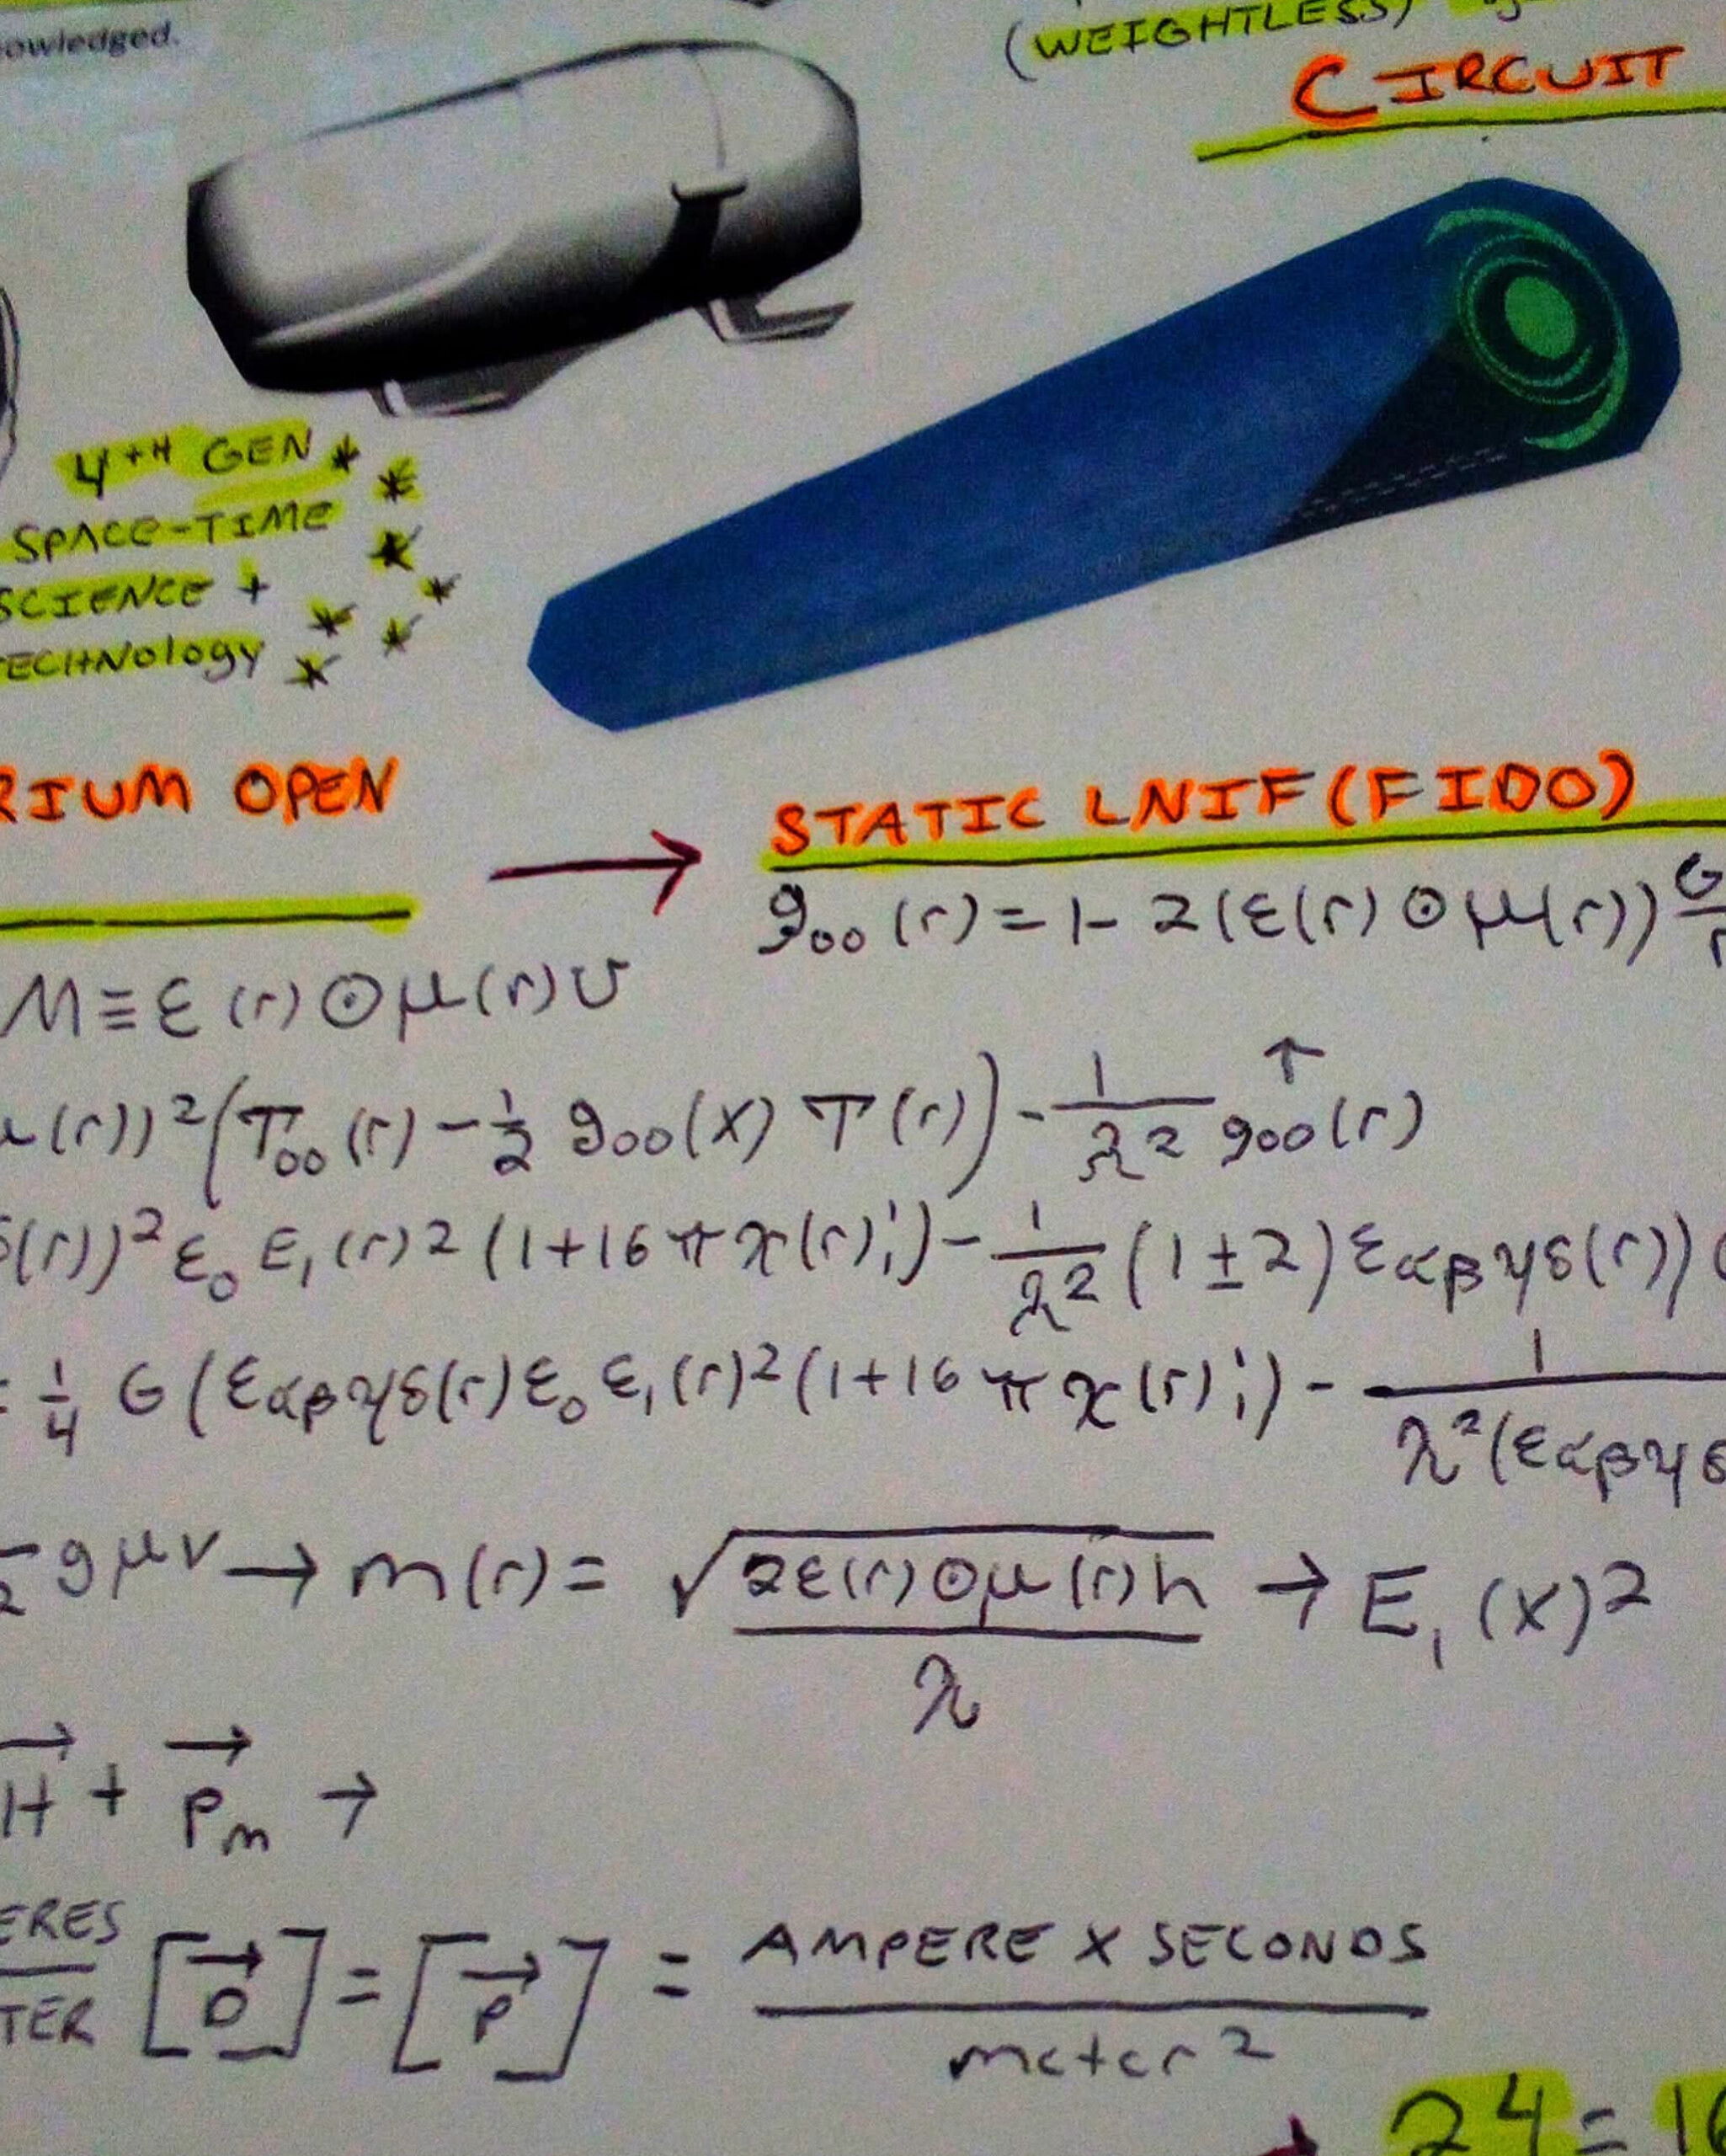 owledged.
(WEIGHTLESS)
CIRCUIT
4TH GEN *
SPACE-TIME
SCIENCE +
TECHNOLOGY
RIUM OPEN
→ STATIC LNIF (FIDO)
g₀₀(r) = 1- 2(ε(r)⊙μ(r)) G
M ≡ ε(r)⊙μ(r)υ
μ(r))²(T₀₀(r) - 1/2 g₀₀(x) T(r)) - 1/λ² g₀₀(r)
δ(r))² ε₀ E₁(r)2 (1+16πχ(r)¡) - 1/λ² (1±2) εαβγδ(r))(
= 1/4 G(εαβγδ(r) ε₀ ε₁(r)²(1+16πχ(r)¡) - 1/λ²(εαβγδ
/2 gμν → m(r) = √2ε(r)⊙μ(r)h/λ → E₁(x)²
H + Pm →
ERES/TER [D] = [P] = AMPERE X SECONDS/meter²
24 = 16